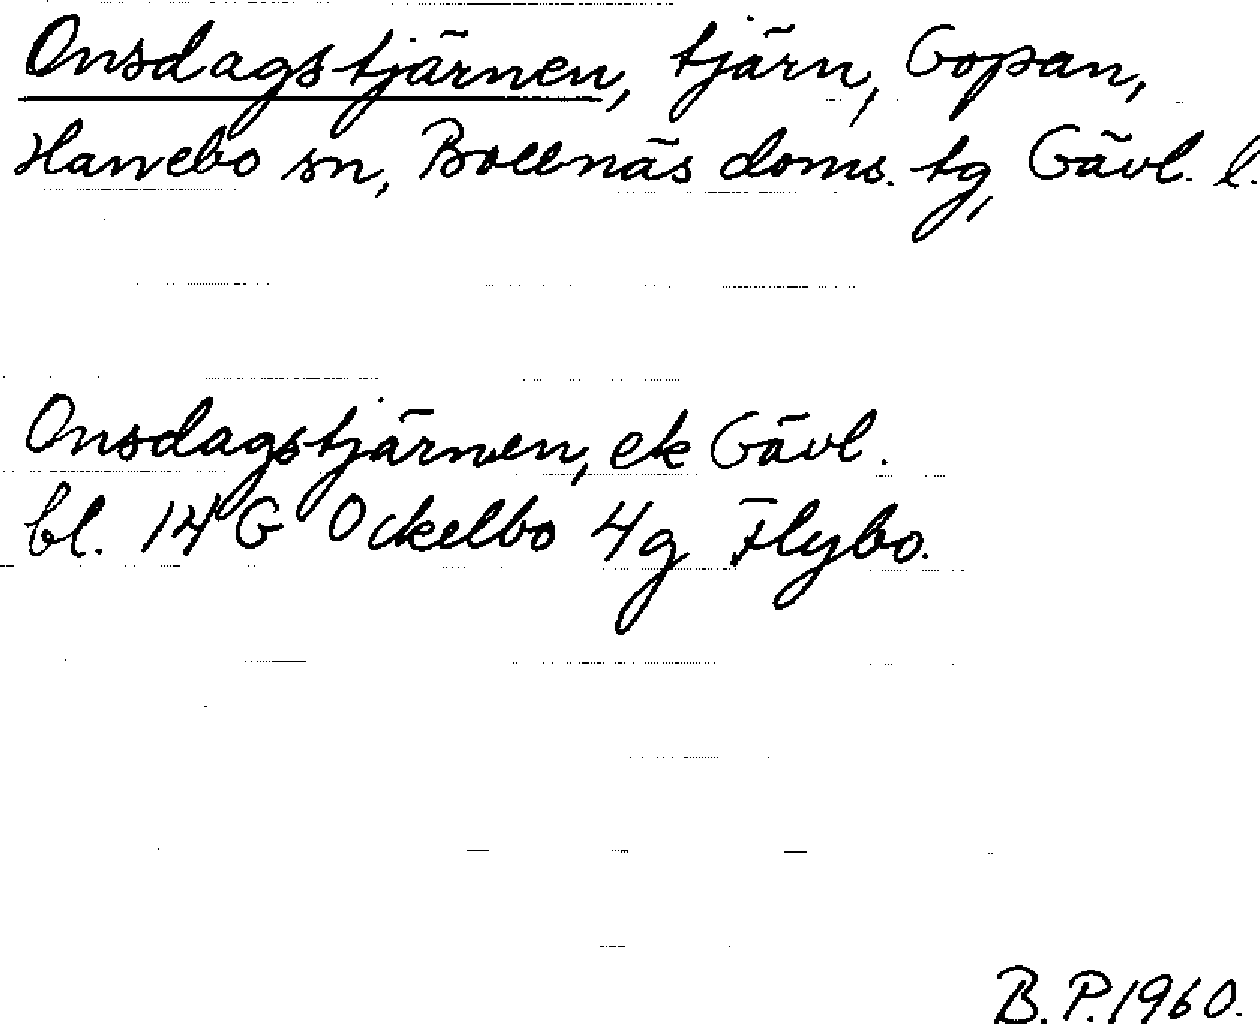 Onsdagstjärnen, tjärn, Gopan,
Hanebo sn, Bollnäs doms. tg, Gävl. l.
Onsdagstjärnen, ek Gävl.
bl. 14 G Ockelbo 4g Flybo.
B.P.1960.